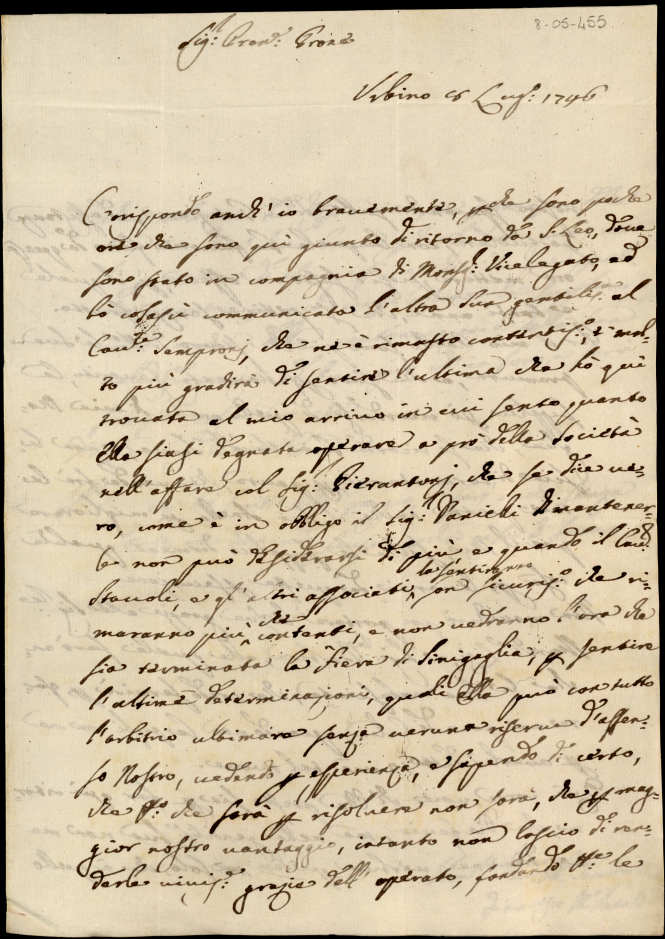 8-05-455
Sig.r Prond.
Urbino Lug.: 1746
Corispondo anch' io brevemente, perche sono poche
ore che sono quì giunto di ritorno da S. Leo, dove
sono stato in compagnia di Mons.r Vicelegato, ed
hò colasù communicata l'altra sua gentilis.a al
Cav.re Sempronj, che ne è rimasto contentis.o, e mol-
to più gradirà di sentire l'ultima che hò quì
trovata al mio arrivo in cui sento quanto
Ella siasi degnata operare a prò della Società
nell'affare col Sig.r Pierantonj, che se dice ve-
ro, come è in obbligo il Sig.r Danielli di mantener-
lo non può desiderarsi di più e quando il Cav.re
Staccoli, e gl'altri associati, la sentiranno son sicuris.o che ri-
maranno più che contenti, e non vedranno l'ora che
sia terminata la Fiera di Sinigaglia, p sentire
l'ultime determinazioni, quali Ella può con tutto
l'arbitrio ultimare senza veruna riserva d'assen-
so Nostro, vedendo p esperienza, e sapendo di certo,
che che sarà p risolvere non sarà, che p mag-
gior nostro vantaggio, intanto non lascio di ren-
derle vivis.e grazie dell' operato, le